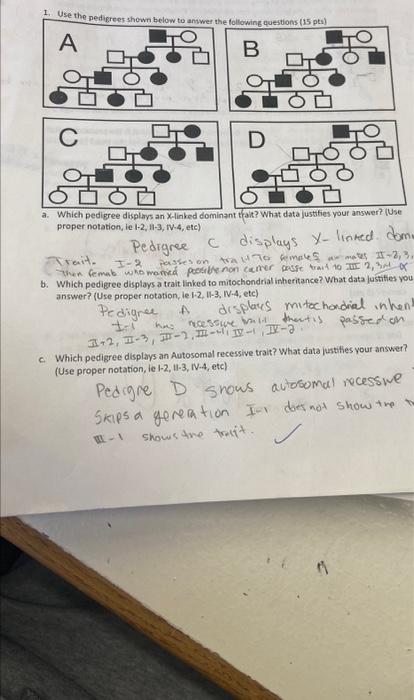 1. Use the pedigrees shown below to answer the following questions (15 pts)
A
B
C
D
a. Which pedigree displays an X-linked dominant trait? What data justifies your answer? (Use
proper notation, ie I-2, II-3, IV-4, etc)
Pedigree C displays X-linked dom
Trait. I-2 passes on trait to females and males II-2, 3,
Then female who married non carrier passe trait to III 2, 3,
b. Which pedigree displays a trait linked to mitochondrial inheritance? What data justifies you
answer? (Use proper notation, ie I-2, II-3, IV-4, etc)
Pedigree A displays mitochondrial inheri
I-1 has recessive trait that is passed on
II-2, II-3, III-2, III-4, IV-1, IV-2.
c. Which pedigree displays an Autosomal recessive trait? What data justifies your answer?
(Use proper notation, ie I-2, II-3, IV-4, etc)
Pedigre D shows autosomal recessive
Skips a generation I-1 does not show the
III-1 shows the trait.